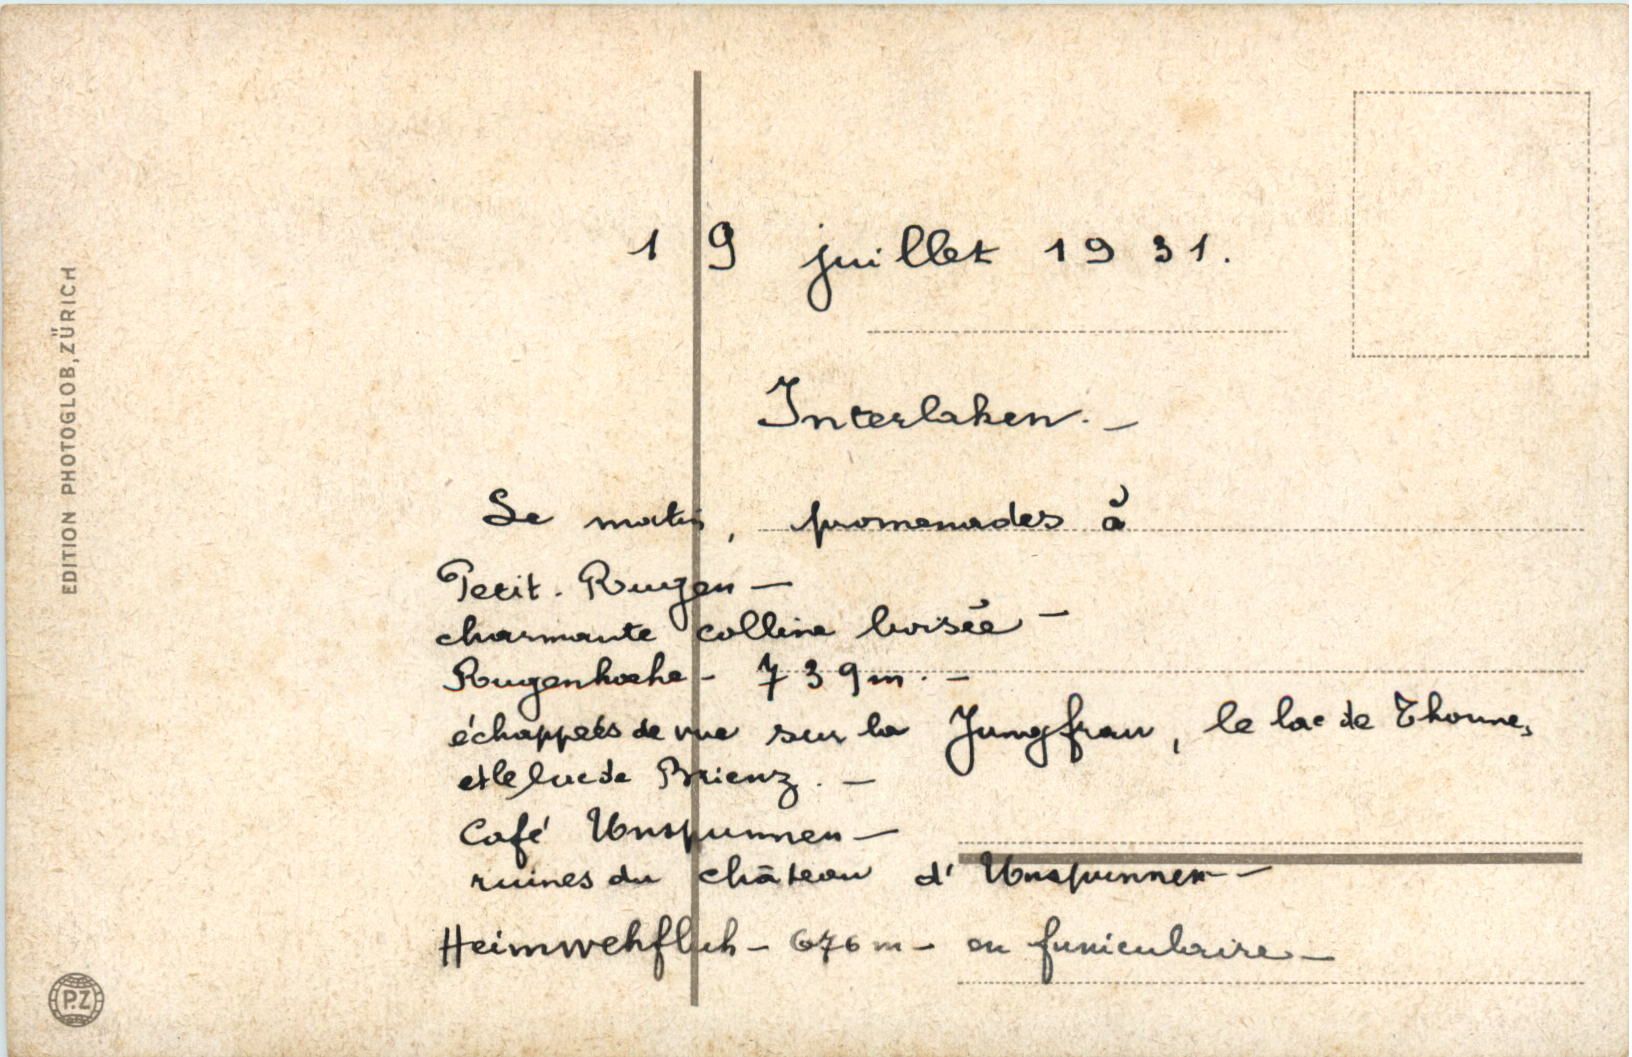 19 juillet 1931.
Interlaken. —
Le matin, promenades à
Petit-Rugen —
charmante colline boisée —
Rugenhoehe - 739m. —
échappées de vue sur la Jungfrau, le lac de Thoune,
et le lac de Brienz. —
Café Unspunnen —
ruines du château d'Unspunnen —
Heimwehfluh - 676m - en funiculaire —
EDITION PHOTOGLOB, ZÜRICH
P.Z